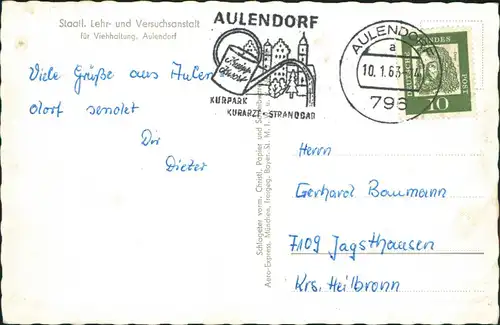 Staatl. Lehr- und Versuchsanstalt
für Viehhaltung, Aulendorf
Viele Grüße aus Aulen
dorf sendet
Dir
Dieter
AULENDORF
KURPARK
KURARZT · STRANDBAD
AULENDORF
a
10.1.63
796
10
Schlogeber vorm. Christl, Papier und
Aero-Express, München, freigeg. Bayer. St. M. f.
Herrn
Gerhard Baumann
7109 Jagsthausen
Krs. Heilbronn